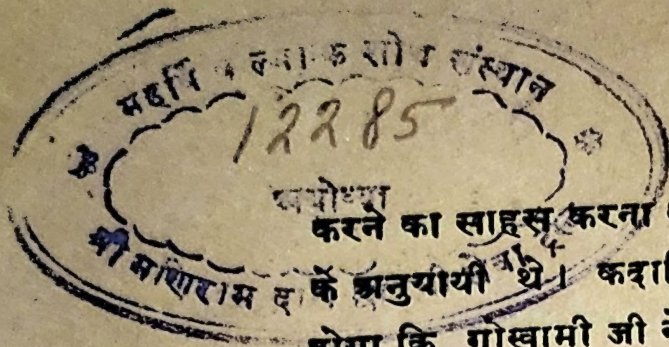 महर्षि वाल्मीकि शोध संस्थान
12285
अयोध्या
श्री मणिराम
करने का साहस करना
के अनुयायी थे। कदा
होगा कि गोस्वामी जी ने